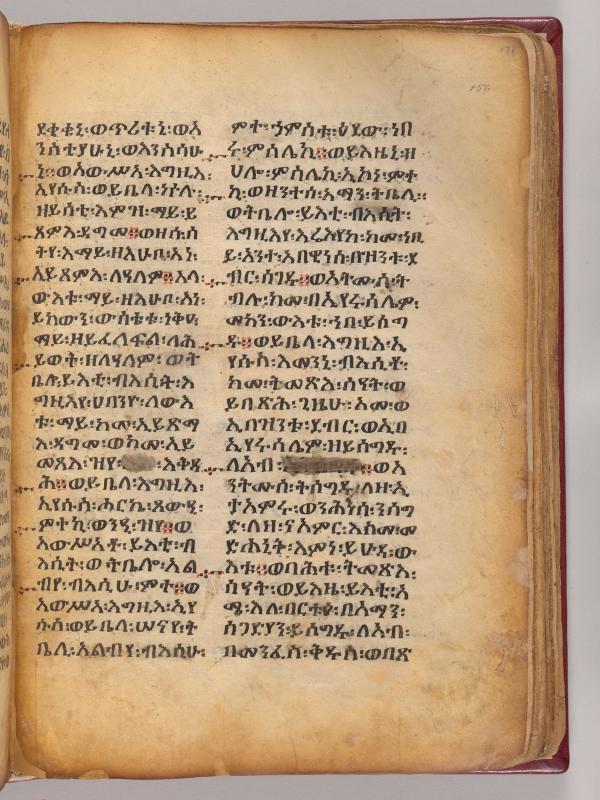 ደቂቁኒ፡ወጥሪቱኒ፡ወእ
ንስተያሁኒ፡ወእንስሳሁ
ኒ።ወአውሥአ፡እግዚእ፡
ኢየሱስ፡ወይቤላ፡ኵሉ፡
ዘይሰቲ፡እምዝ፡ማይ፡ይ
ጸምእ፡ዳግመ።ወዘሰ፡ሰ
ትየ፡እማይ፡ዘእሁቦ፡አነ፡
ኢይጸምእ፡ለዓለም።አላ፡
ውእቱ፡ማይ፡ዘእሁቦ፡አነ፡
ይከውን፡ውስቴቱ፡ነቅዐ፡
ማይ፡ዘይፈለፍል፡ለሕ
ይወት፡ዘለዓለም፡ወት
ቤሎ፡ይእቲ፡ብእሲት፡እ
ግዚእየ፡ሀበንዮ፡ለውእ
ቱ፡ማይ፡ከመ፡ኢይጽማ
እ፡ዳግመ፡ወከመ፡ኢይ
መጽእ፡ዝየ፡እቅዳ
ሕ።ወይቤላ፡እግዚእ፡
ኢየሱስ፡ሖርኪ፡ጸውዒ፡
ምተኪ፡ወንዒ፡ዝየ።ወ
አውሥአቶ፡ይእቲ፡ብ
እሲት፡ወትቤሎ፡አል
ብየ፡ብእሲ፡ሁ፡ምተ።ወ
አውሥአ፡እግዚእ፡ኢየ
ሱስ፡ወይቤላ፡ሠናየ፡ት
ቤሊ፡አልብየ፡ብእሰሁ፡
ምተ፡ኃምስቱ፡ዕደው፡ነበ
ሩ፡ምስሌኪ።ወይእዜኒ፡ዘ
ሀሎ፡ምስሌኪ፡ኢኮነ፡ምተ
ኪ፡ወዘንተሰ፡አማን፡ትቤሊ።
ወትቤሎ፡ይእቲ፡ብእሲት፡
እግዚእየ፡እሬእየከ፡ከመ፡ነቢ
ይ፡አንተ፡አበዊነሰ፡በዝንቱ፡ደ
ብር፡ሰገዱ።ወአትሙሰ፡ት
ብሉ፡ከመ፡በኢየሩሳሌም፡
መካን፡ውእቱ፡ኀበ፡ይሰግ
ዱ።ወይቤላ፡እግዚእ፡ኢ
የሱስ፡እመንኒ፡ብእሲቶ፡
ከመ፡ትመጽእ፡ሰዓት፡ወ
ይበጽሕ፡ጊዜሁ፡አመ፡ወ
ኢበዝንቱ፡ደብር፡ወኢበ
ኢየሩሳሌም፡ዘይሰግዱ፡
ለአብ፡።ወአ
ንትሙሰ፡ትሰግዱ፡ለዘ፡ኢ
ታአምሩ፡ወንሕነሰ፡ንሰግ
ድ፡ለዘ፡ናአምር፡እስመ፡መ
ድኀኒት፡እምነ፡ይሁዳ፡ው
እቱ።ወባሕቱ፡ትመጽእ፡
ሰዓት፡ወይእዜ፡ይእቲ፡አ
ሜ፡እለ፡በርቱዕ፡በአማን፡
ሰጋድያን፡ይሰግዱ፡ለአብ፡
በመንፈስ፡ቅዱስ፡ወበጽ